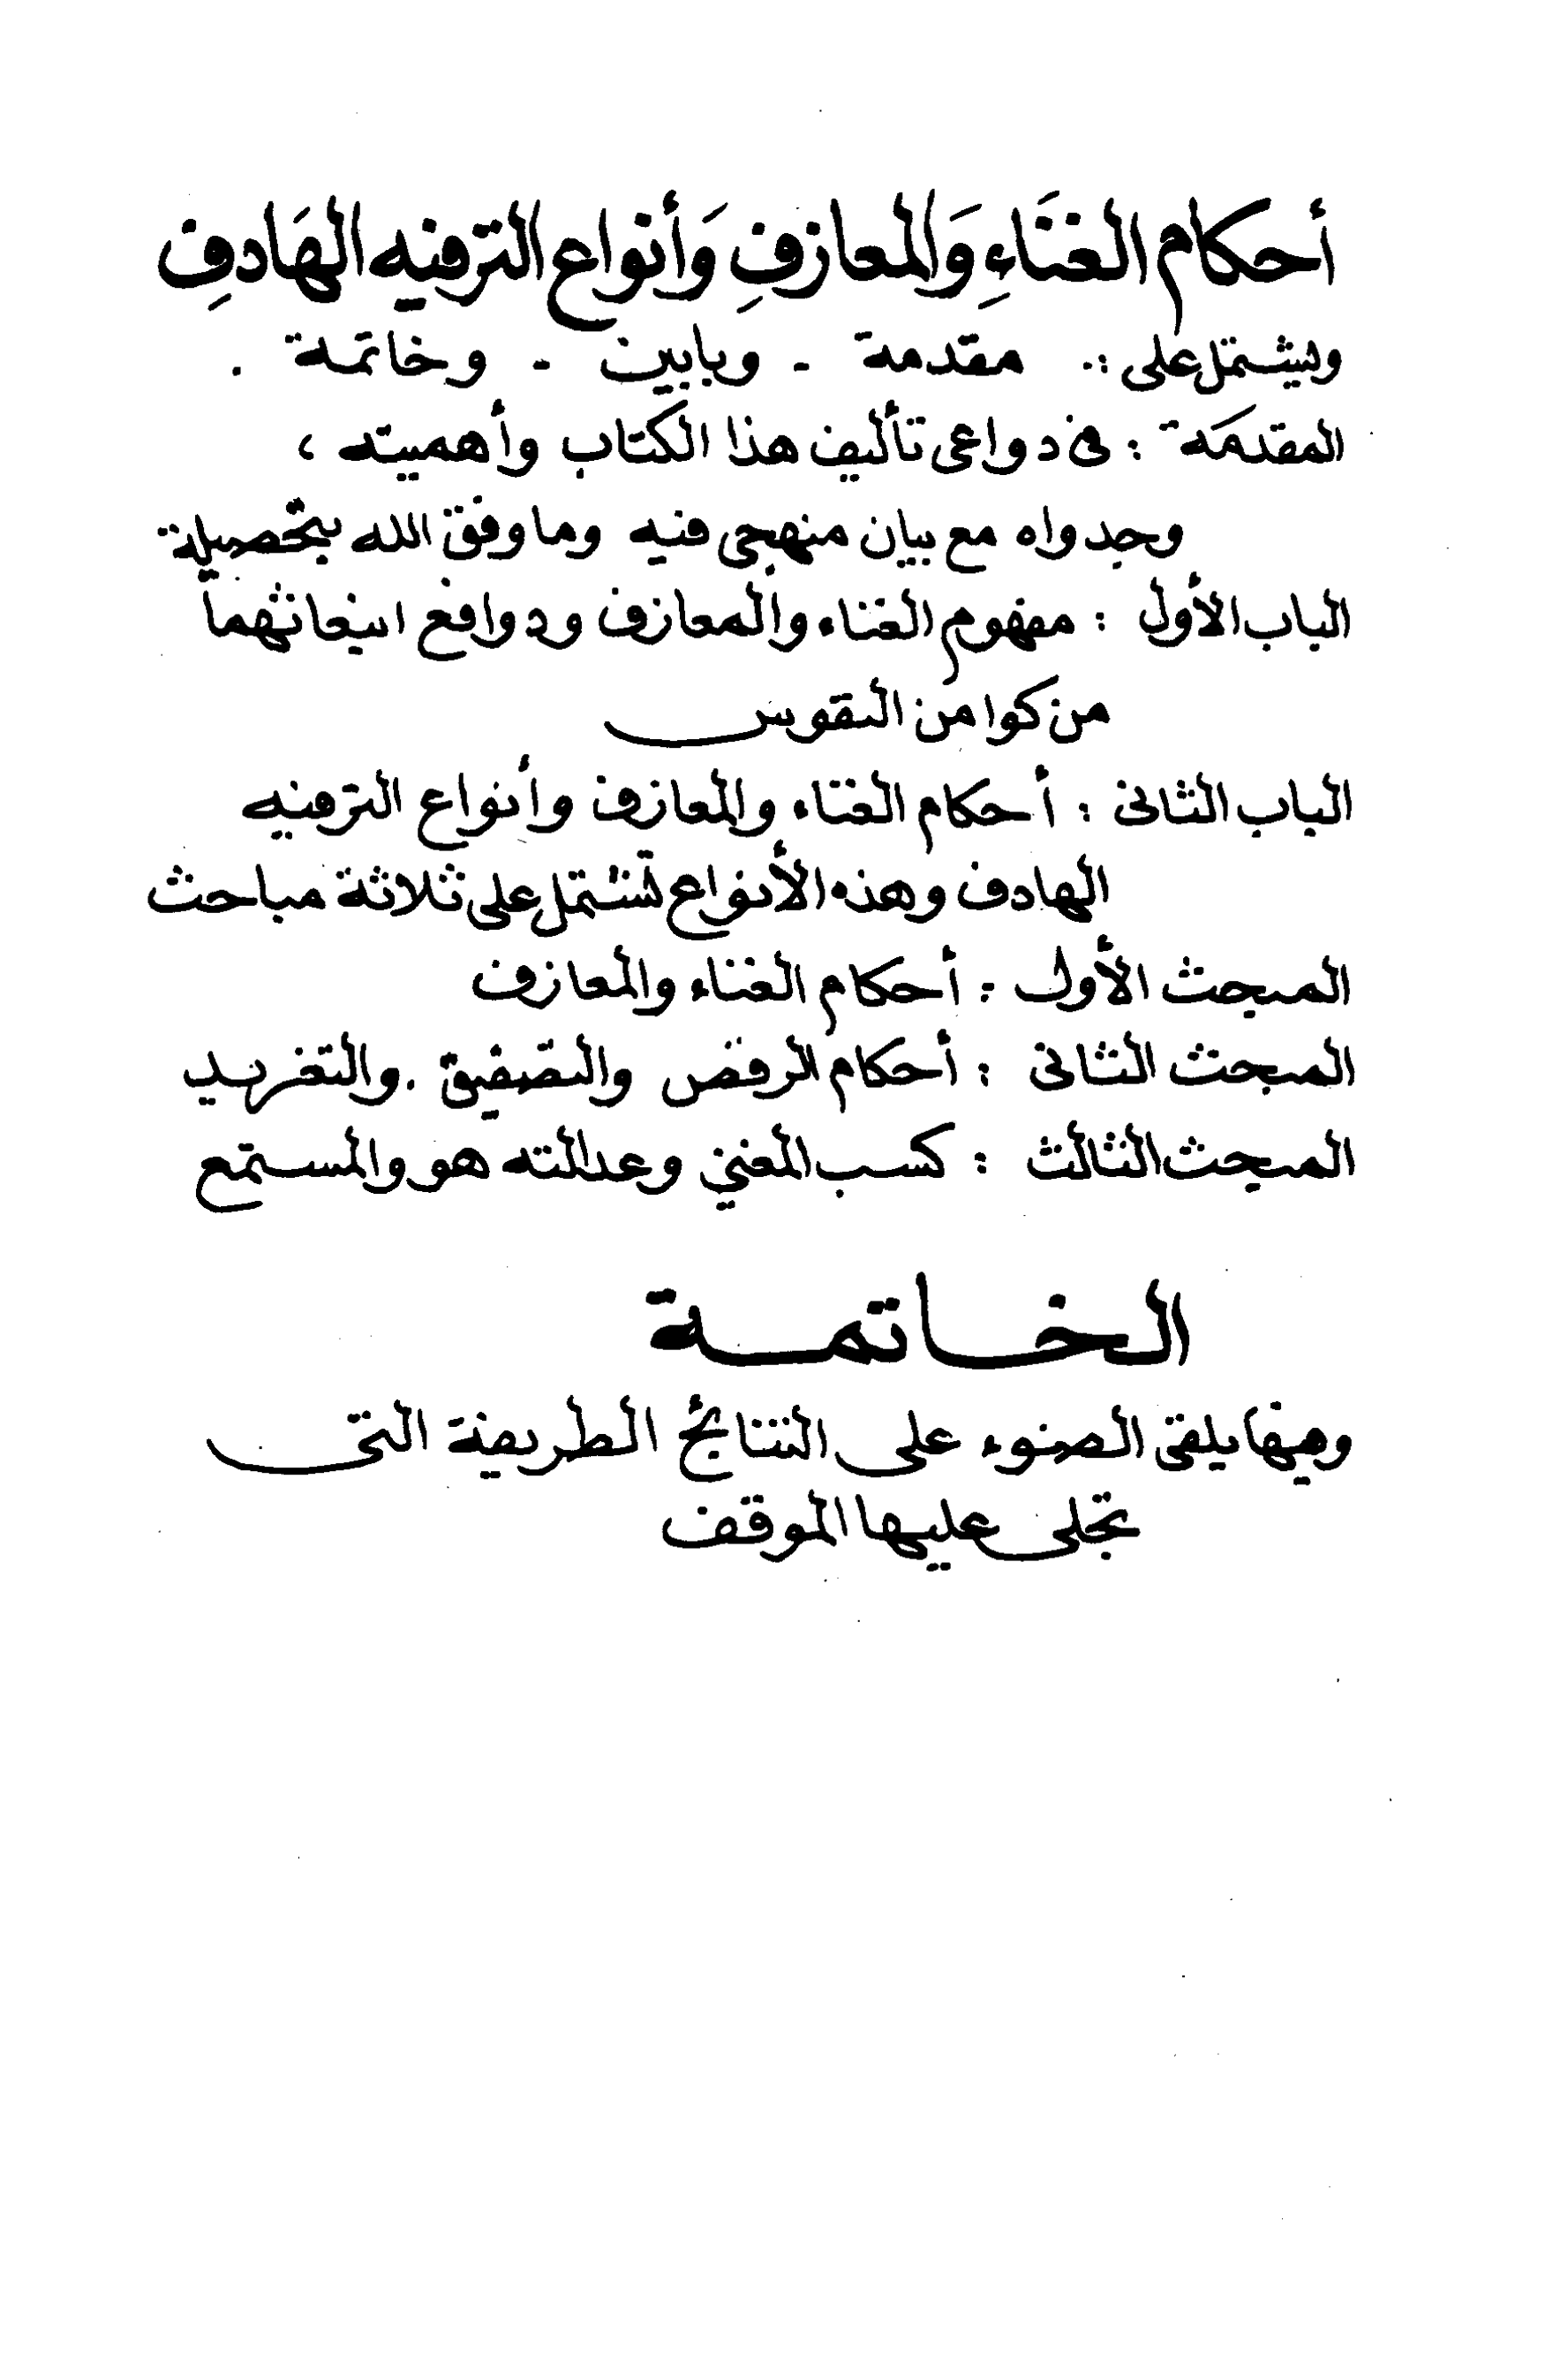 أحكام الغنَاءِ وَالمعازفِ وَأنواع الترفيه الهَادفِ
ويشتمل على : مقدمة - وبابين - وخاتمة .
المقدمَة : فى دواعى تأليف هذا الكتاب وأهميته ،
وجدواه مع بيان منهجى فيه وما وفق الله بتحصيلة
الباب الأول : مفهوم الغناء والمعازف ودوافع انبعاثهما
من كوامن النفوس
الباب الثانى : أحكام الغناء والمعازف وأنواع الترفيه
الهادف وهذه الأنواع تشتمل على ثلاثة مباحث
المبحث الأول : أحكام الغناء والمعازف
المبحث الثانى : أحكام الرقص والتصفيق . والتغريد
المبحث الثالث : كسب المغني وعدالته هو والمستمع
الخاتمة
وفيها يلقى الضوء على النتائج الطريفة التى
تجلى عليها الموقف